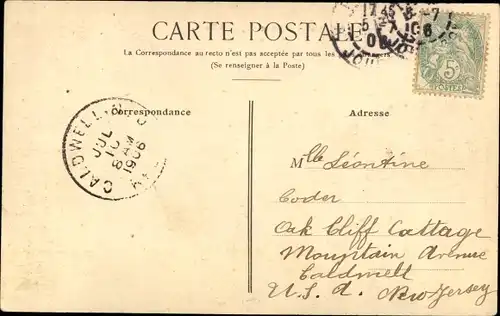 CARTE POSTALE
La Correspondance au recto n'est pas acceptée par tous les
(Se renseigner à la Poste)
5c
POSTES
Correspondance
Adresse
CALDWELL
JUL
10
8 AM
1906
Mlle Léontine
Coder
Oak Cliff Cottage
Mountain Avenue
Caldwell
U.S.A. New Jersey